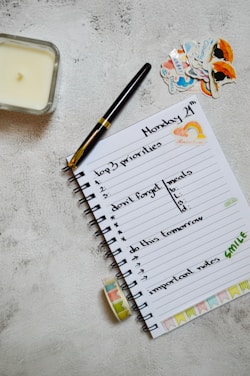 Monday 24th
top 3 priorities
1.
2.
3.
don't forget meals
B:
L:
S:
D:
do this tomorrow
important notes
SMILE